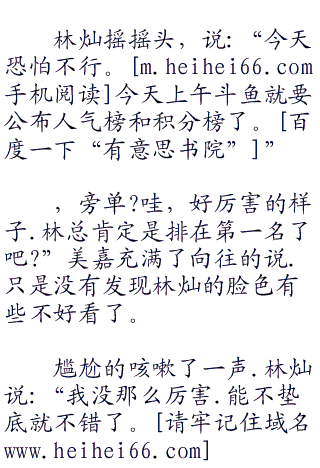 林灿摇摇头，说:“今天
恐怕不行。[m.heihei66.com
手机阅读]今天上午斗鱼就要
公布人气榜和积分榜了。[百
度一下“有意思书院”]”
，旁单?哇，好厉害的样
子.林总肯定是排在第一名了
吧?”美嘉充满了向往的说.
只是没有发现林灿的脸色有
些不好看了。
尴尬的咳嗽了一声.林灿
说:“我没那么厉害.能不垫
底就不错了。[请牢记住域名
www.heihei66.com]